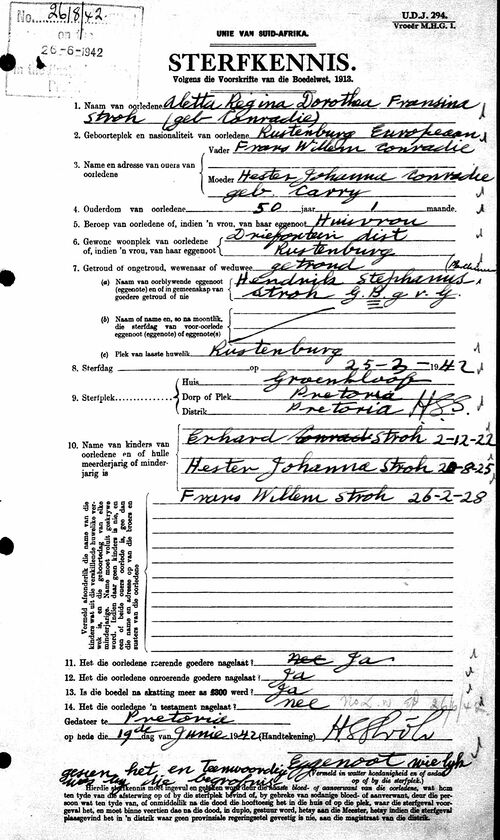 No. 26/8/42.
26-6-1942
U.D.J. 294.
Vroeër M.H.G. 1.
UNIE VAN SUID-AFRIKA.
STERFKENNIS.
Volgens die Voorskrifte van die Boedelwet, 1913.
1. Naam van oorledene Aletta Regina Dorothea Fransina
Stroh (geb Conradie)
2. Geboorteplek en nasionaliteit van oorledene Rustenburg Europeaan
3. Naam en adresse van ouers van oorledene
Vader Frans Willem Conradie
Moeder Hester Johanna Conradie
geb. Carry
4. Ouderdom van oorledene 50 jaar 1 maande.
5. Beroep van oorledene of, indien 'n vrou, van haar eggenoot Huisvrou
6. Gewone woonplek van oorledene of, indien 'n vrou, van haar eggenoot
Driefontein dist
Rustenburg
7. Getroud of ongetroud, wewenaar of weduwee getroud
(a) Naam van oorblywende eggenoot (eggenote) en of in gemeenskap van goedere getroud of nie
Hendrik Stephanus
Stroh G.B.g.v.G.
(b) Naam of name en, so na moontlik, die sterfdag van voor-oorlede eggenoot (eggenote) of eggenote(s)
(c) Plek van laaste huwelik Rustenburg
8. Sterfdag op 25-3-1942
9. Sterfplek
Huis Groenkloof
Dorp of Plek Pretoria
Distrik Pretoria H.S.S.
10. Name van kinders van oorledene en of hulle meerderjarig of minderjarig is
Erhard Conrad Stroh 2-12-22
Hester Johanna Stroh 20-8-25
Frans Willem Stroh 26-2-28
Vermeld afsonderlik die name van die kinders wat uit die verskillende huwelike verwek is, en die geboortedag van elke minderjarige. Name moet voluit geskrywe word. Indien daar geen kinders is nie, en een of beide ouers oorlede is, gee dan die name en adresse op van die broers en susters van die oorledene
11. Het die oorledene roerende goedere nagelaat? nee Ja
12. Het die oorledene onroerende goedere nagelaat? Ja
13. Is die boedel na skatting meer as £300 werd? Ja
14. Het die oorledene 'n testament nagelaat? nee
Gedateer te Pretoria
op hede die 19de dag van Junie 1942 (Handtekening) HSStroh
Eggenoot wie lyk
(Vermeld in watter hoedanigheid en of andes op of by die sterfplek).
gesien het, en teenwoordig
was by die begrafnis
Hierdie sterfkennis moet ingevul en geteken word deur die naaste bloed- of aanverwant van die oorledene, wat hom ten tyde van die afsterwing op of by die sterfplek bevind of, by gebreke van sodanige bloed- of aanverwant, deur die persoon wat ten tyde van, of onmiddellik na die dood die hoofbeheer het in die huis of op die plek, waar die sterfgeval voorgeval het, en moet binne veertien dae na die dood, in duplo, gestuur word, betsy aan die Meester, betsy indien die sterfgeval plaasgevind het in 'n distrik waar geen provinsiale regeringsetel gevestig is nie, aan die magistraat van die distrik.